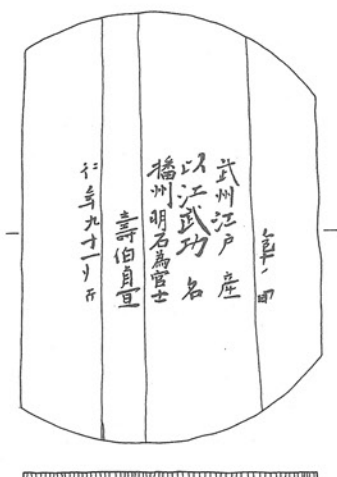 武州江戸産
以江武功名
播州明石為官士
壽伯貞宣
行年九十一